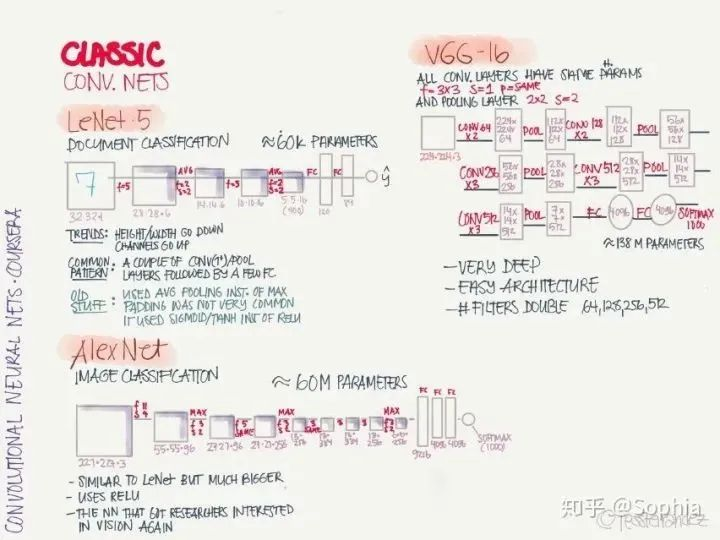 CLASSIC
CONV. NETS
LeNet-5
DOCUMENT CLASSIFICATION ≈60K PARAMETERS
7
f=5
AVG
f=2
S=2
f=5
AVG
f=2
S=2
FC
FC
ŷ
32·32·1
28·28·6
14·14·6
10·10·16
5·5·16
(400)
120
84
TRENDS: HEIGHT/WIDTH GO DOWN
CHANNELS GO UP
COMMON PATTERN: A COUPLE OF CONV(1+)/POOL
LAYERS FOLLOWED BY A FEW FC
OLD STUFF: USED AVG POOLING INST. OF MAX
PADDING WAS NOT VERY COMMON
IT USED SIGMOID/TANH INST OF RELU
AlexNet
IMAGE CLASSIFICATION ≈ 60M PARAMETERS
f 11
S 4
MAX
f 3
S 2
f 5
SAME
MAX
f 3
S 2
3
SAME
3
3
MAX
FC
FC
227·227·3
55·55·96
27·27·96
27·27·256
9216
4096
4096
SOFTMAX
(1000)
- SIMILAR TO LeNet BUT MUCH BIGGER
- USES RELU
- THE NN THAT GOT RESEARCHERS INTERESTED
IN VISION AGAIN
VGG-16
ALL CONV. LAYERS HAVE SAME PARAMS
f=3x3 S=1 P=SAME
AND POOLING LAYER 2x2 S=2
224·224·3
CONV 64
x2
224x
224x
64
POOL
112x
112x
64
CONV 128
x2
112x
112x
128
POOL
56x
56x
128
CONV 256
x3
56x
56x
256
POOL
28x
28x
256
CONV 512
x3
28x
28x
512
POOL
14x
14x
512
CONV 512
x3
14x
14x
512
POOL
7x
7x
512
FC
4096
FC
4096
SOFTMAX
1000
≈138 M PARAMETERS
- VERY DEEP
- EASY ARCHITECTURE
- # FILTERS DOUBLE 64,128,256,512
CONVOLUTIONAL NEURAL NETS · COURSERA
知乎 @Sophia